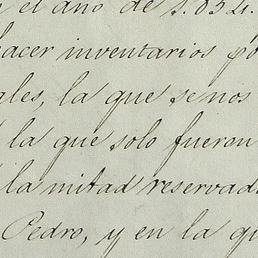 el año de 1.852.
hacer inventarios po
ales, la que se nos
la que solo fueron
la mitad reservad
Pedro, y en la qu